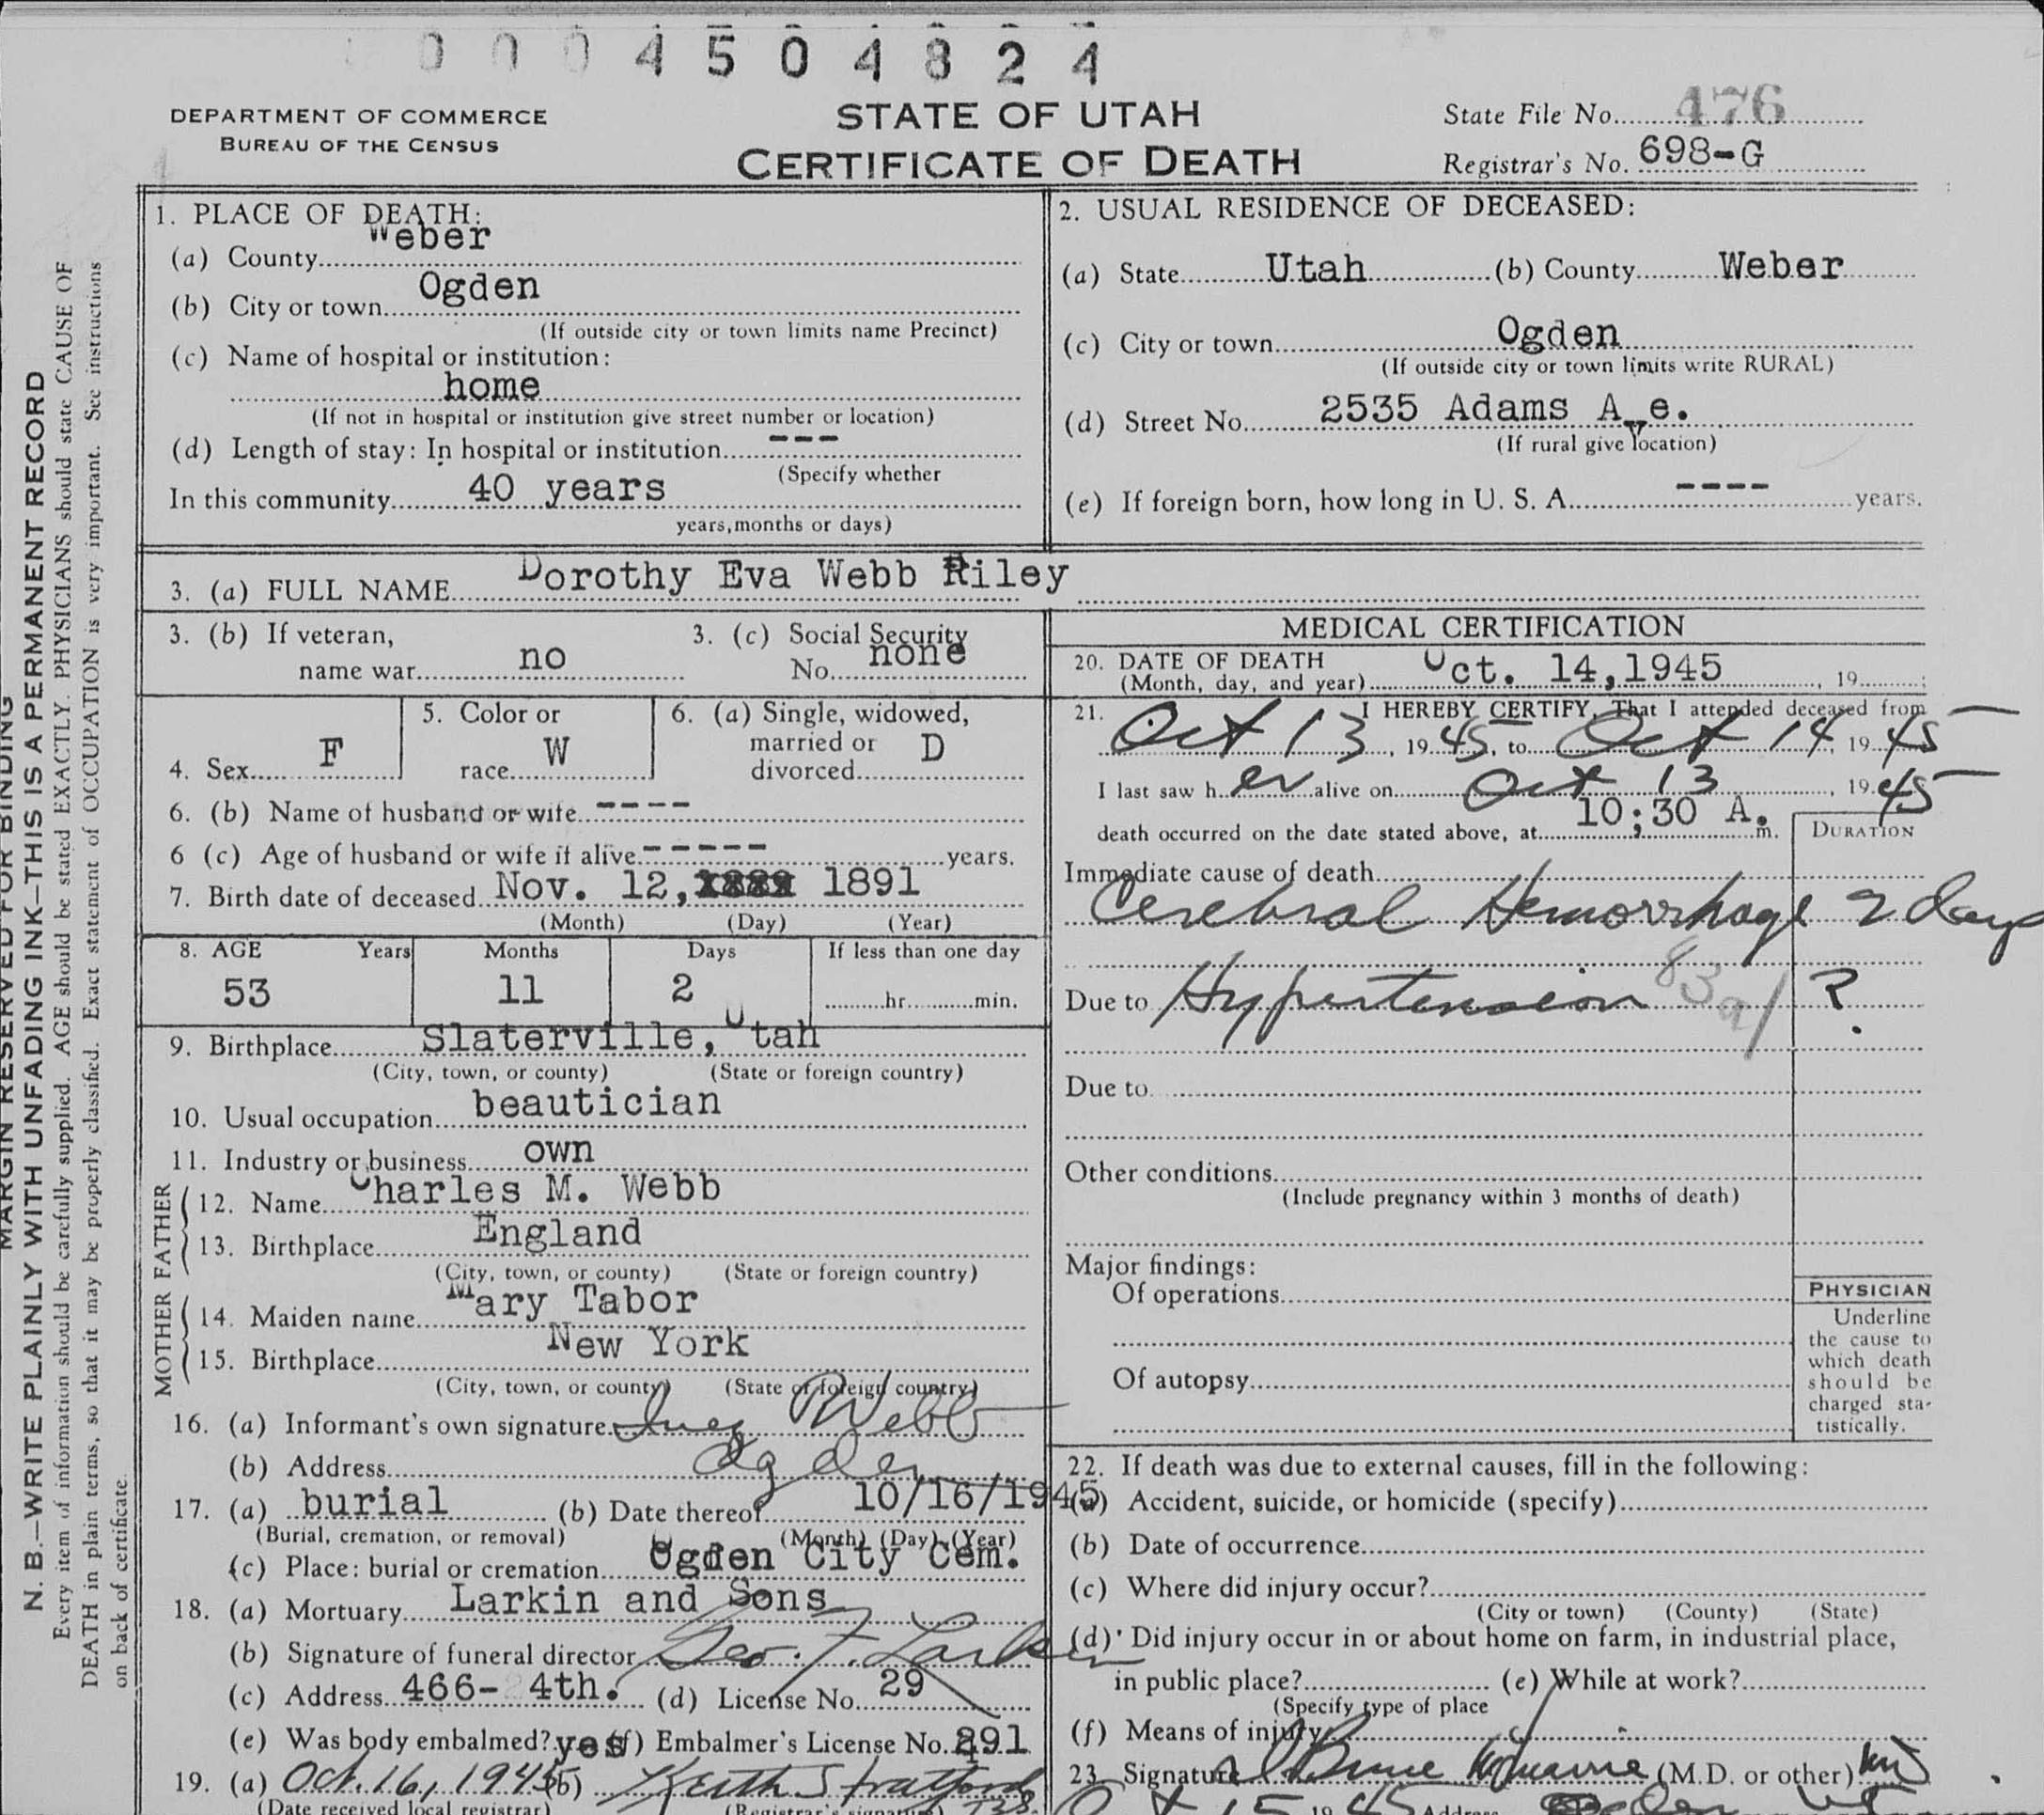 0004504824
DEPARTMENT OF COMMERCE
BUREAU OF THE CENSUS
STATE OF UTAH
CERTIFICATE OF DEATH
State File No. 476
Registrar's No. 698-G
MARGIN RESERVED FOR BINDING
N. B.—WRITE PLAINLY WITH UNFADING INK—THIS IS A PERMANENT RECORD
Every item of information should be carefully supplied. AGE should be stated EXACTLY. PHYSICIANS should state CAUSE OF
DEATH in plain terms, so that it may be properly classified. Exact statement of OCCUPATION is very important. See instructions
on back of certificate.
1. PLACE OF DEATH:
(a) County Weber
(b) City or town Ogden
(If outside city or town limits name Precinct)
(c) Name of hospital or institution:
home
(If not in hospital or institution give street number or location)
(d) Length of stay: In hospital or institution ---
(Specify whether
In this community 40 years
years, months or days)
2. USUAL RESIDENCE OF DECEASED:
(a) State Utah (b) County Weber
(c) City or town Ogden
(If outside city or town limits write RURAL)
(d) Street No. 2535 Adams Ave.
(If rural give location)
(e) If foreign born, how long in U. S. A. ---- years.
3. (a) FULL NAME Dorothy Eva Webb Riley
3. (b) If veteran,
name war no
3. (c) Social Security
No. none
4. Sex F
5. Color or
race W
6. (a) Single, widowed,
married or
divorced D
6. (b) Name of husband or wife ----
6 (c) Age of husband or wife if alive ----- years.
7. Birth date of deceased Nov. 12, 1891
(Month) (Day) (Year)
8. AGE Years Months Days If less than one day
53 11 2 hr. min.
9. Birthplace Slaterville, Utah
(City, town, or county) (State or foreign country)
10. Usual occupation beautician
11. Industry or business own
FATHER
12. Name Charles M. Webb
13. Birthplace England
(City, town, or county) (State or foreign country)
MOTHER
14. Maiden name Mary Tabor
15. Birthplace New York
(City, town, or county) (State or foreign country)
16. (a) Informant's own signature Inez Webb
(b) Address Ogden
17. (a) burial (b) Date thereof 10/16/1945
(Burial, cremation, or removal) (Month) (Day) (Year)
(c) Place: burial or cremation Ogden City Cem.
18. (a) Mortuary Larkin and Sons
(b) Signature of funeral director Geo. F. Larkin
(c) Address 466- 24th. (d) License No. 29
(e) Was body embalmed? yes (f) Embalmer's License No. 291
19. (a) Oct. 16, 1945 (b) Keith Stratford
(Date received local registrar) (Registrar's signature)
MEDICAL CERTIFICATION
20. DATE OF DEATH
(Month, day, and year) Oct. 14, 1945, 19
21. I HEREBY CERTIFY, That I attended deceased from
Oct 13, 19 45, to Oct 14, 19 45
I last saw h er alive on Oct 13, 19 45
death occurred on the date stated above, at 10:30 A. m.
DURATION
Immediate cause of death
Cerebral Hemorrhage 2 days
Due to Hypertension 83a/ ?
Due to
Other conditions
(Include pregnancy within 3 months of death)
Major findings:
Of operations
Of autopsy
PHYSICIAN
Underline
the cause to
which death
should be
charged sta-
tistically.
22. If death was due to external causes, fill in the following:
(a) Accident, suicide, or homicide (specify)
(b) Date of occurrence
(c) Where did injury occur?
(City or town) (County) (State)
(d) Did injury occur in or about home on farm, in industrial place,
in public place? (e) While at work?
(Specify type of place
(f) Means of injury
23. Signature (M.D. or other) MD
Oct 15 19 45 Address Ogden Ut